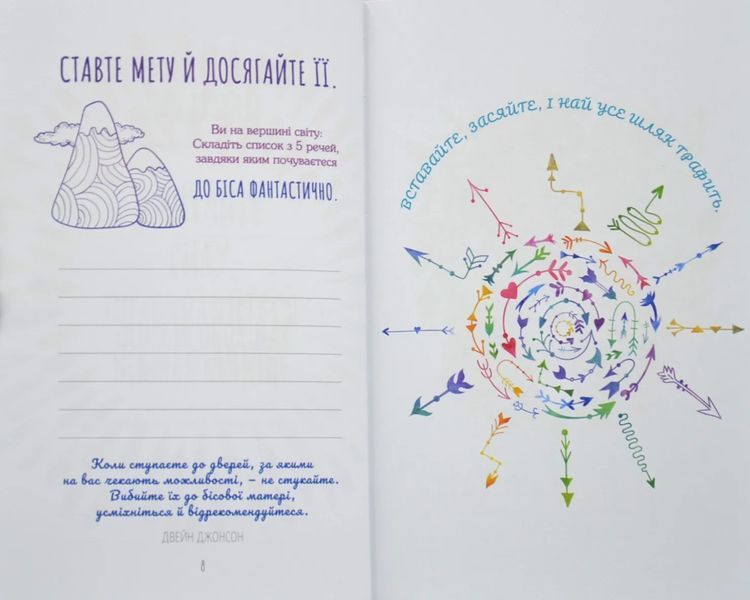 СТАВТЕ МЕТУ Й ДОСЯГАЙТЕ ЇЇ.
Ви на вершині світу:
Складіть список з 5 речей,
завдяки яким почуваєтеся
ДО БІСА ФАНТАСТИЧНО.
Коли ступаєте до дверей, за якими
на вас чекають можливості, – не стукайте.
Вибийте їх до бісової матері,
усміхніться й відрекомендуйтеся.
ДВЕЙН ДЖОНСОН
8
ВСТАВАЙТЕ, ЗАСЯЙТЕ, І НАЙ УСЕ ШЛЯК ТРАФИТЬ.